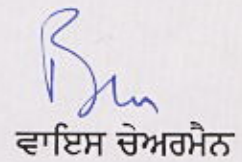 ਵਾਇਸ ਚੇਅਰਮੈਨ